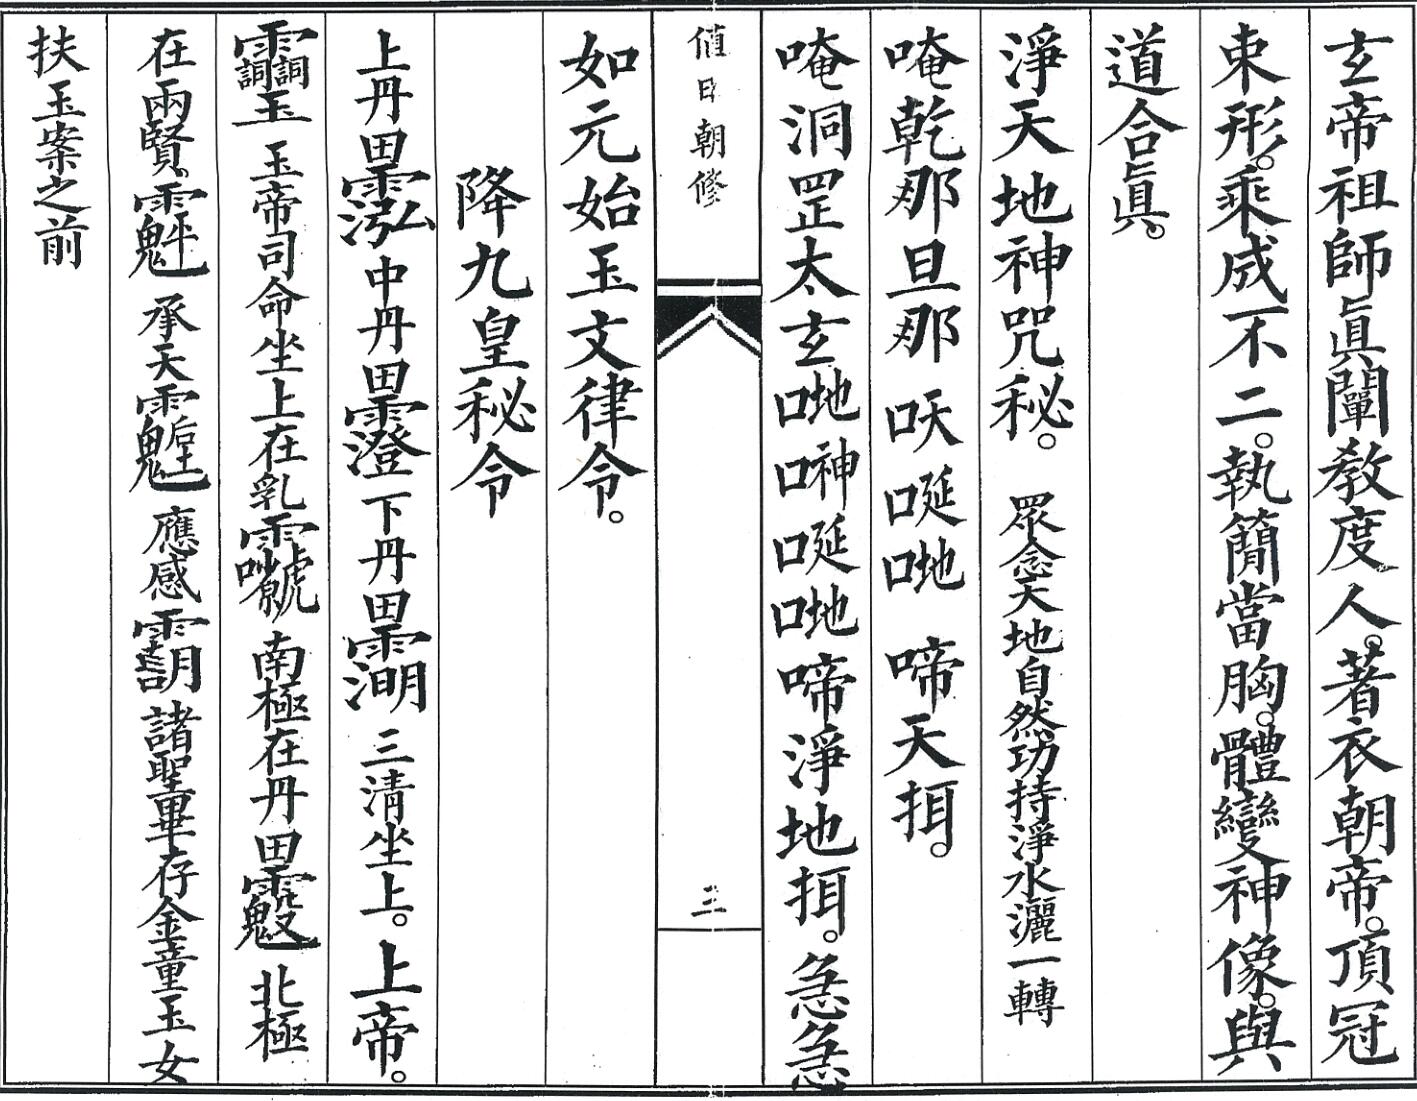 玄帝祖師眞闡教度人。著衣朝帝。頂冠
束形。乘成不二。執簡當胸。體變神像。與
道合眞。
淨天地神咒秘。 眾念天地自然功持淨水灑一轉
唵乾那旦那 㕭 唌 哋 啼天挕。
唵洞罡太玄哋𠰴唌哋啼淨地挕。急急
值日朝修 三
如元始玉文律令。
降九皇秘令
上丹田 中丹田 下丹田 三清坐上。上帝。
玉帝司命坐上在乳 南極在丹田 北極
在兩賢。 承天 應感 諸聖畢存金童玉女
扶玉案之前